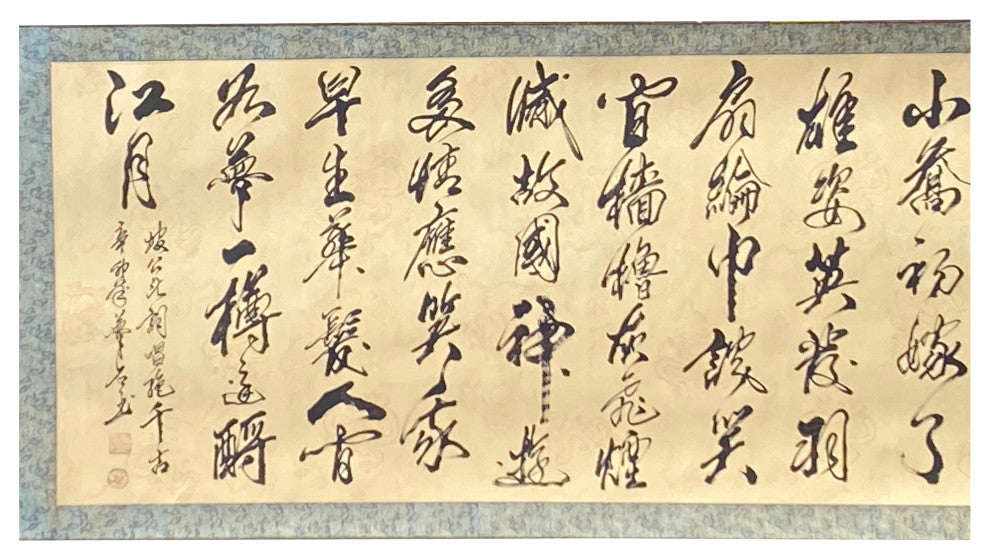 小喬初嫁了
雄姿英發羽
扇綸巾談笑
間檣櫓灰飛煙
滅故國神遊
多情應笑我
早生華髮人間
如夢一樽還酹
江月
坡公此詞唱絕千古